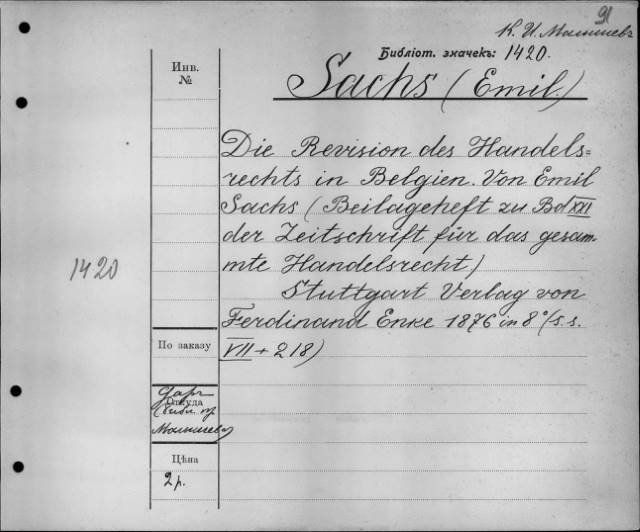 91
К. И. Малышевъ
Библіот. значекъ: 1420.
Инв.
№
Sachs (Emil.)
Die Revision des Handels=
rechts in Belgien. Von Emil
Sachs (Beilageheft zu Bd XXI
der Zeitschrift für das gesam-
mte Handelsrecht)
1420
Stuttgart Verlag von
Ferdinand Enke 1876 in 8° (s.s.
VII + 218)
По заказу
Откуда
даръ
библ. пр
Малышева
Цѣна
2 р.